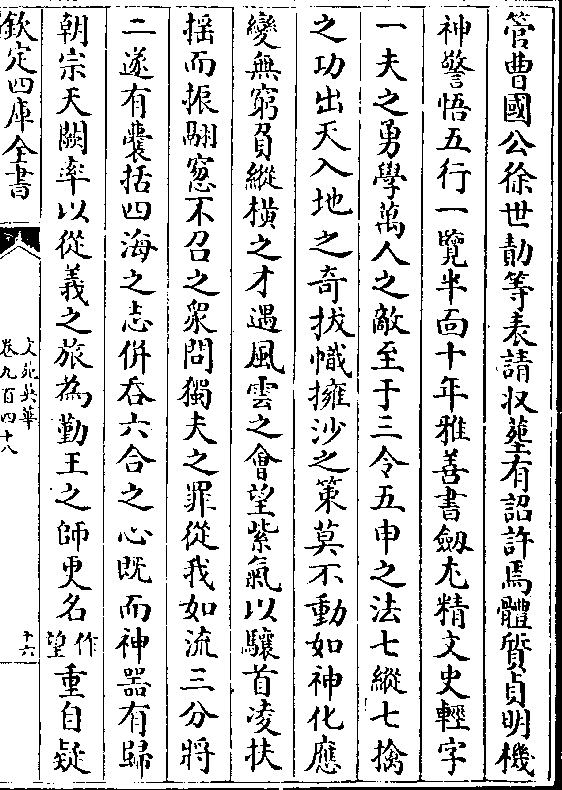 管曹國公徐世勣等表請収塟有詔許焉體質貞明機
神警悟五行一覽半面十年雅善書劔尤精文史輕字
一夫之勇學萬人之敵至于三令五申之法七縱七擒
之功出天入地之奇拔幟擁沙之策莫不動如神化應
變無窮負縱橫之才遇風雲之會望紫氣以驤首凌扶
揺而振翮窓不召之衆問獨夫之罪從我如流三分將
二遂有囊括四海之志併吞六合之心既而神噐有歸
朝宗天闕率以從義之旅為勤王之師更名作望重自疑
欽定四庫全書
文苑英華
卷九百四十八
十六